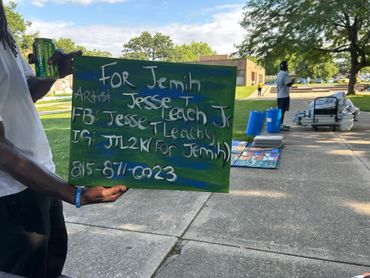 FOR Jemih
Artist: Jesse Teach Jr
FB: Jesse TLeachy
IG: JTL2K (For Jemih)
815-871-0023